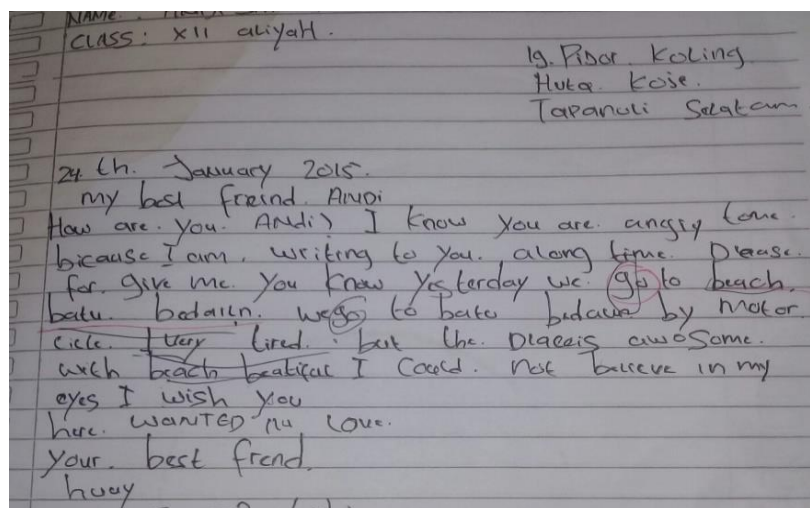 NAME:
CLASS: XII aliyaH.
Jg. Pidor Koling
Huta. Koje.
Tapanuli Selatam
24 th. January 2015.
my best freind. ANDi
How are. you. ANDi) I know you are. angry tome.
bicause I am. writing to you. along time. Please.
for. give me. you know yesterday we. go to beach.
batu. we go to batu by motor.
cicle. I very tired. but the. placeis awosome.
with beach beatifut I could. not believe in my
eyes I wish you
here. WANTED nu Love.
your. best frend.